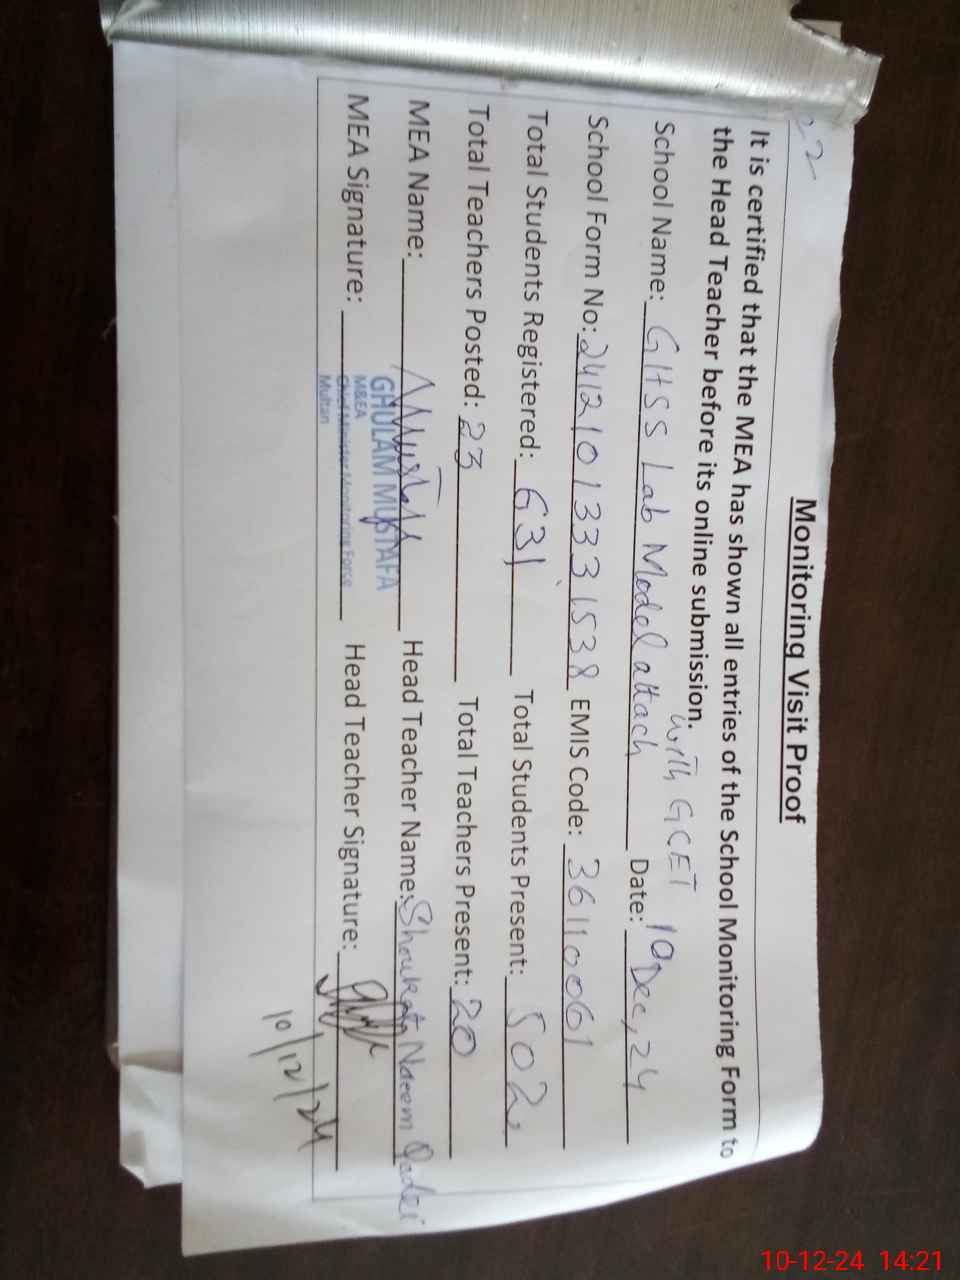 22
Monitoring Visit Proof
It is certified that the MEA has shown all entries of the School Monitoring Form to
the Head Teacher before its online submission.
School Name: GHSS Lab Model attach with GCET Date: 10 Dec, 24
School Form No: 2412101333 1538 EMIS Code: 36110061
Total Students Registered: 631 Total Students Present: 502
Total Teachers Posted: 23 Total Teachers Present: 20
MEA Name: Head Teacher Name: Shoukat Naeem Qadri
GHULAM MUSTAFA
M&EA
Chief Minister Monitoring Force
Multan
MEA Signature: Head Teacher Signature:
10/12/24
10-12-24 14:21